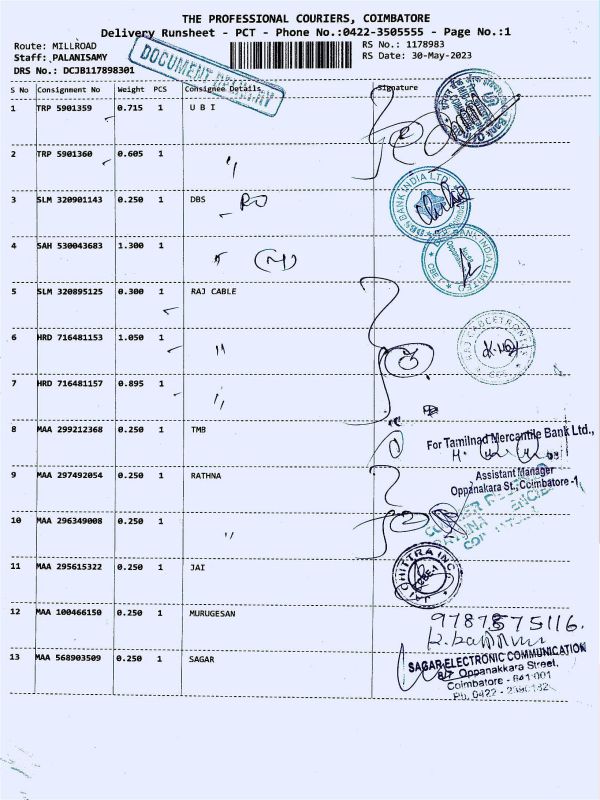 THE PROFESSIONAL COURIERS, COIMBATORE
Delivery Runsheet - PCT - Phone No.:0422-3505555 - Page No.:1
Route: MILLROAD RS No.: 1178983
Staff: PALANISAMY RS Date: 30-May-2023
DRS No.: DCJB117898301
DOCUMENT DELIVERY
S No Consignment No Weight PCS Consignee Details Signature
1 TRP 5901359 0.715 1 U B I
2 TRP 5901360 0.605 1 "
3 SLM 320901143 0.250 1 DBS
DBS BANK INDIA LTD
4 SAH 530043683 1.300 1 "
BANK INDIA LIMITED
5 SLM 320895125 0.300 1 RAJ CABLE
6 HRD 716481153 1.050 1 "
7 HRD 716481157 0.895 1 "
8 MAA 299212368 0.250 1 TMB
For Tamilnad Mercantile Bank Ltd.,
Assistant Manager
Oppanakara St., Coimbatore -1
9 MAA 297492054 0.250 1 RATHNA
10 MAA 296349008 0.250 1 "
11 MAA 295615322 0.250 1 JAI
JAI CHITTRA INC
12 MAA 100466150 0.250 1 MURUGESAN
9787575116.
13 MAA 568903509 0.250 1 SAGAR
SAGAR ELECTRONIC COMMUNICATION
Oppanakkara Street,
Coimbatore - 641 001